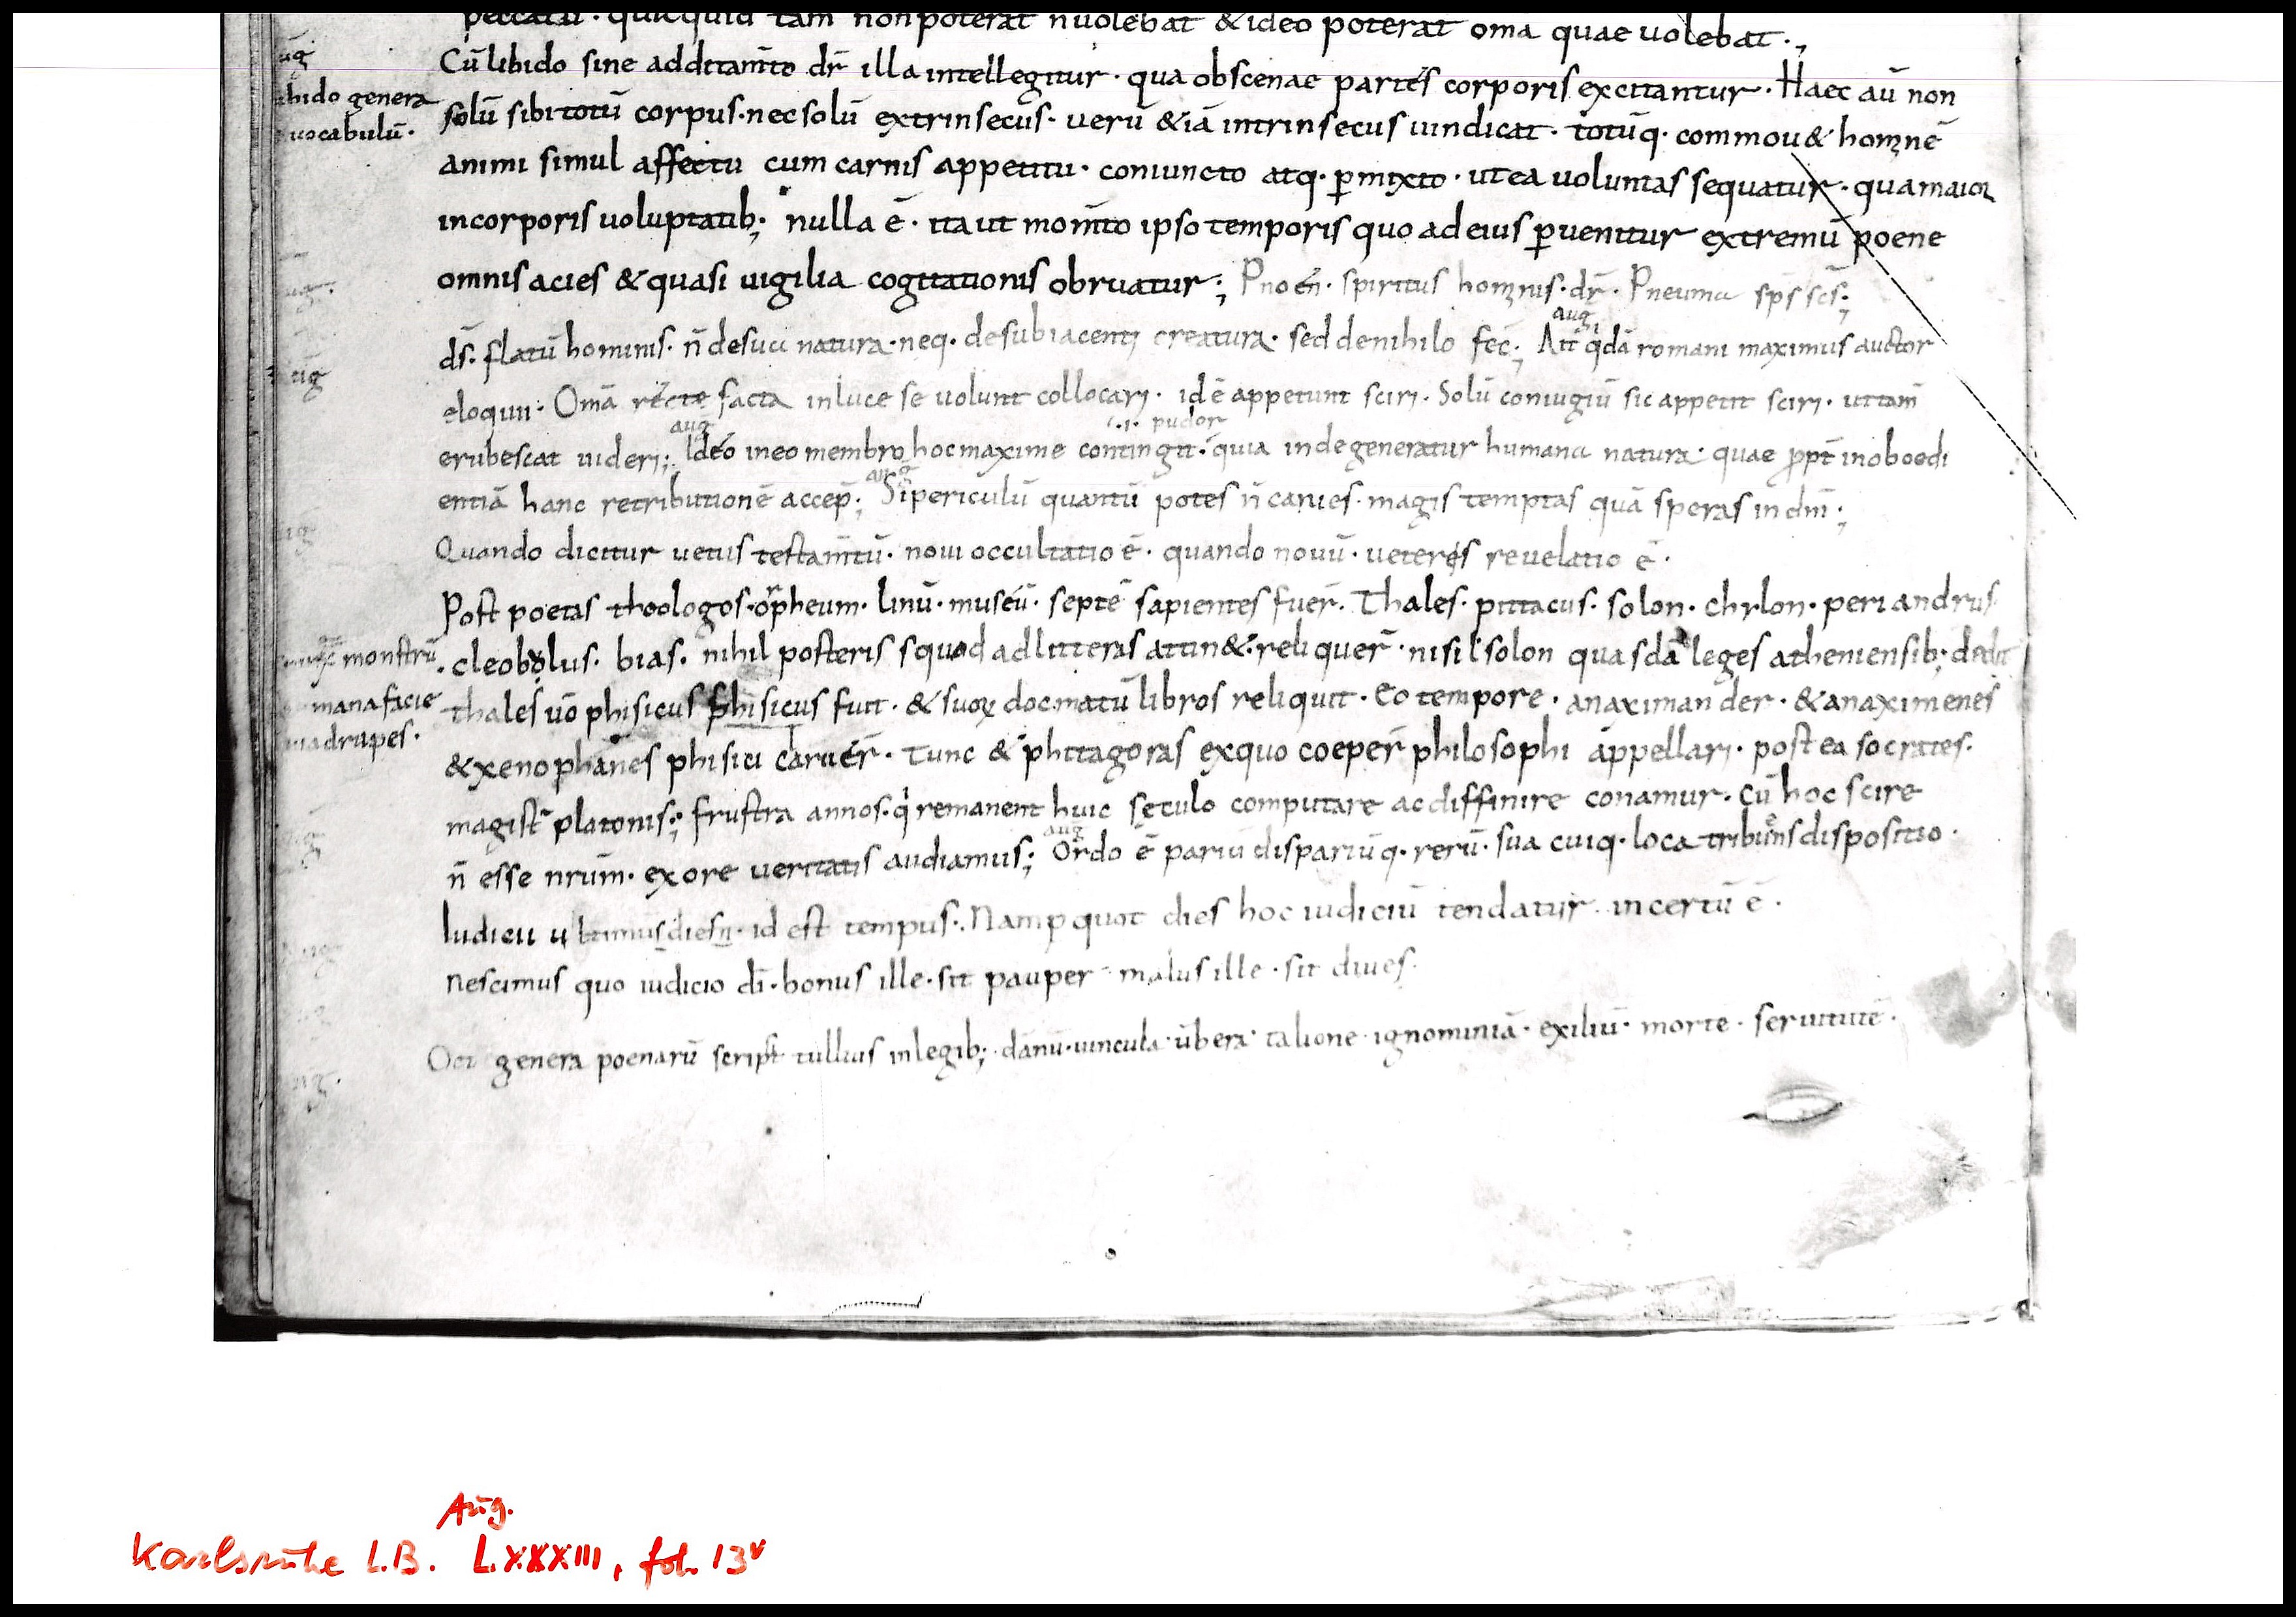 peccatū · quicquid tam non poterat nuolebat & ideo poterat om̄a quae uolebat ·,
Cū libido sine additam̄to dr̄ illa intellegitur · qua obscenae partes corporis excitantur · Haec aū non
ūg
bido genera
uocabulū ·
solū sibi totū corpus · nec solū extrinsecus · uerū & iā intrinsecus uindicat · totūq· commou& homınē
animi simul affectu cum carnis appetitu · coniuncto atq· ꝑmixto · ut ea uoluntas sequatur · qua maior
in corporis uoluptatib; nulla ē · ita ut mom̄to ipso temporis quo ad eius ꝑuenitur extremū poene
omnis acies & quasi uigilia cogitationis obruatur ; Pnoēn · spiritus hominis · dr̄ · Pneuma sp̄s sc̄s ;
ds̄ · flatū hominis · n̄ de sua natura · neq· de subiacenti creatura · sed de nihilo fec̄ ; aug Ait qdā romani maximus auctor
ūg
eloquii · Om̄a recte facta in luce se uolunt collocari · id ē appetunt sciri · Solū coniugiū sic appetit sciri · ut tam̄
erubescat uideri ; aug Ideo in eo membro hoc maxime contingit · .i. pudor quia inde generatur humana natura · quae ꝓpt̄ inoboedi
entiā hanc retributionē accep̄ ; aug Si periculū quantū potes n̄ caues · magis temptas quā speras in dn̄i ;
Quando dicitur uetus testam̄tū · noui occultatio ē · quando nouū · ueteres reuelatio ē ·
Post poetas theologos · orpheum · linū · museū · septē sapientes fuer̄ · Thales · pittacus · solon · chylon · periandrus
monstrū
mana facie
uadrupes ·
· cleobolus · bias · nihil posteris s quod ad litteras attin& · reliquer̄ · nisi solon quasdā leges atheniensib; dedit
thales uō phisicus phisicus fuit · & suoꝝ docmatū libros reliquit · Eo tempore · anaximander · & anaximenes
& xenophanes phisici caruer̄ · Tunc & phitagoras ex quo coeper̄ philosophi appellari · postea socrates ·
magist̄ platonis ; frustra annos · qi remanent huic sęculo computare ac diffinire conamur · Cū hoc scire
n̄ esse nr̄um · ex ore ueritatis audiamus ; aug Ordo ē pariū dispariūq· rerū · sua cuiq· loca tribuens dispositio ·
Iudicii ultimus dies · id est tempus · Nam p quot dies hoc iudiciū tendatur · incertū ē ·
Nescimus quo iudicio dī · bonus ille · sit pauper · malus ille · sit diues ·
Oct genera poenarū script tullius in legib; · dānū · uincula · ūbera · talione · ignominiā · exiliū · morte · seruitutē ·
Karlsruhe L.B. Aug. LXXXIII, fol. 13v